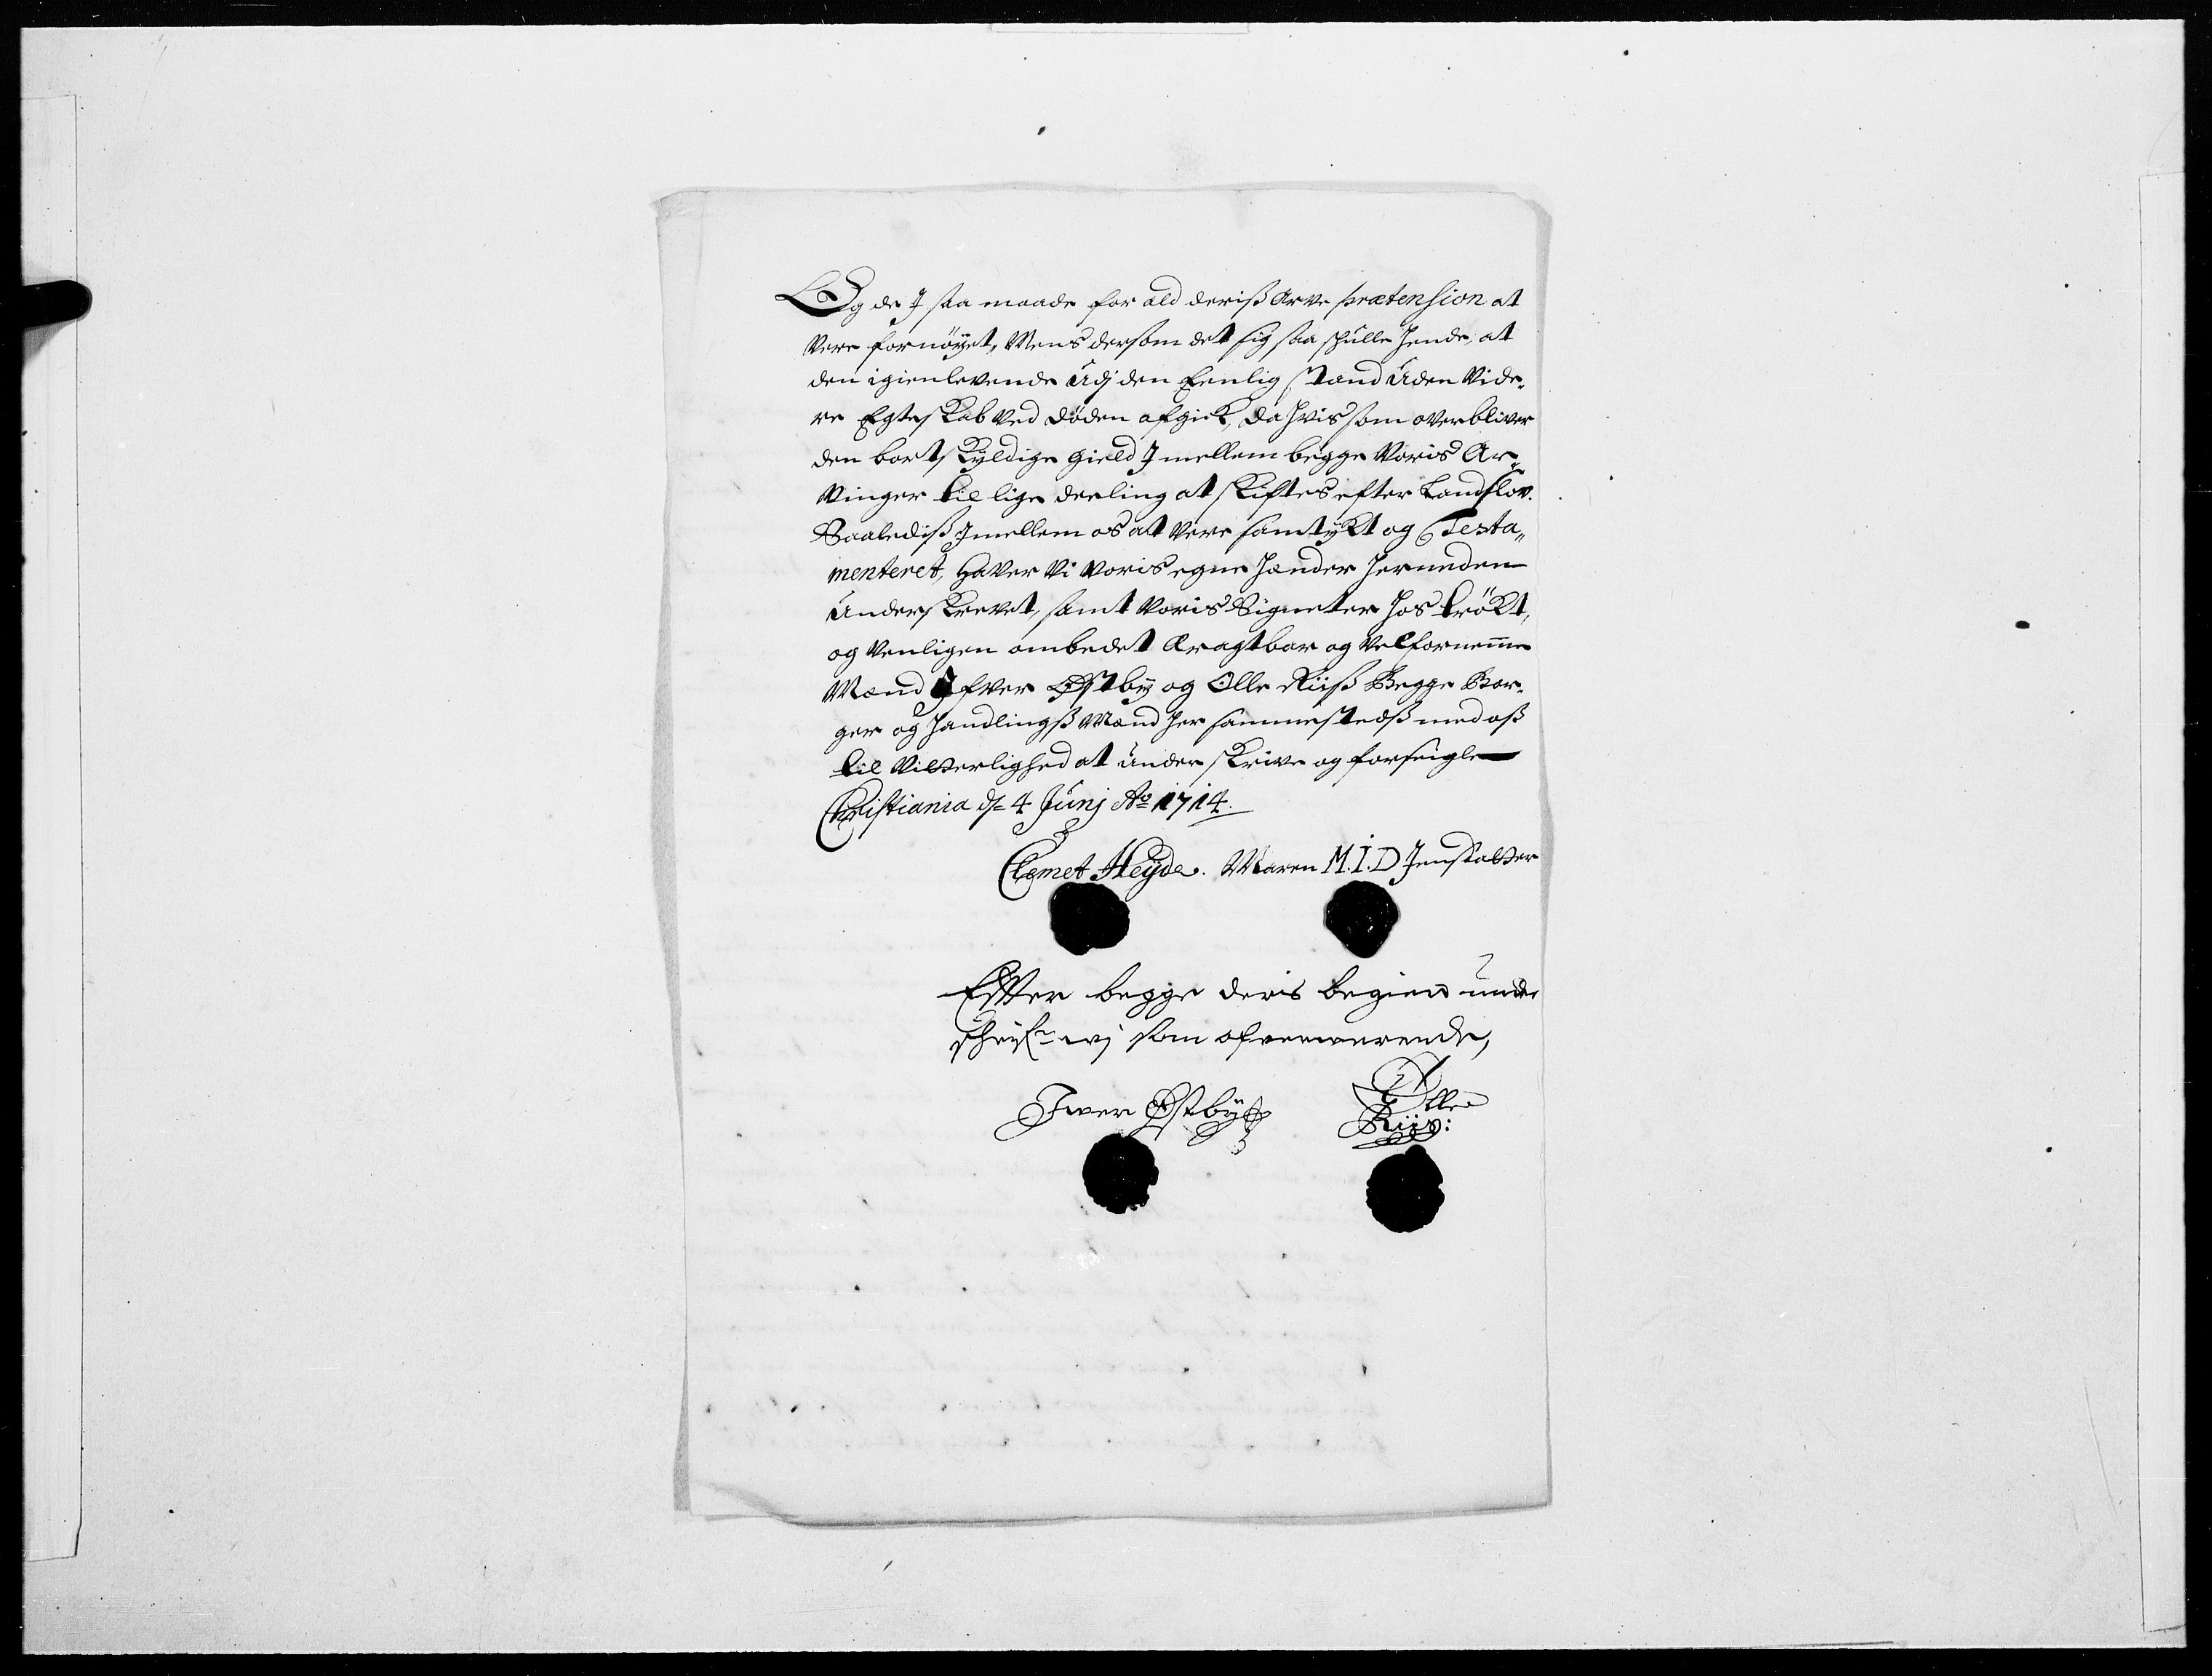 Og de J saa maade for ald deriß Arve prætension at
Vere fornöÿet, Mens dersom det sig saa skulle hende, at
den igienlevende Udj den Eenlig stand Uden Vide-
re Egteskab ved döden afgick, da hvis som overbliver
den bortskÿldige gield Jmellem begge Voris Ar-
Vinger til lige deeling at skiftes efter Landslov.
Saalediß Jmellem os at Vere samtÿkt og Testa-
menteret, Haver Vi Voris egne hænder herneden
Underskrevet, samt Voris Signeter hos trökt,
og Venligen ombedet Æragtbar og Velforneme
Mænd Jfver Østbÿ og Olle Riiß Begge Bor-
ger og Handlingß Mænd her sammestedß med oß
til Vitterlighed at Underskrive og forseigle
Christiania ds 4 Junj Ao 1714.
Clemet Heÿde. Maren M.I.D Jensdatter
Efter begge deris begier under
schrifr wj som ofverwerende,
Jwer Østbÿ
Olle
Riis: